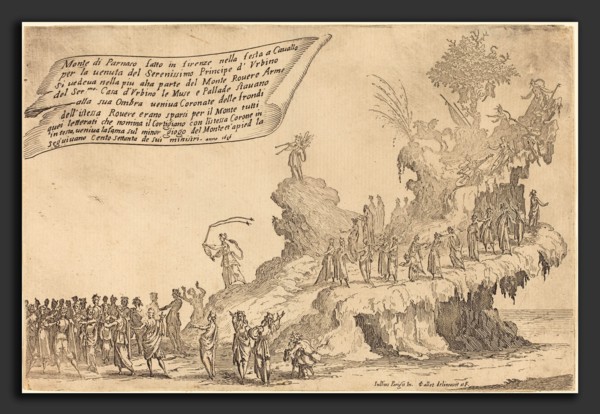 Monte di Parnaso fatto in firenze nella festa a Cavallo
per la venuta del Serenissimo Principe d'Urbino
Si vedeva nella piu alta parte del Monte Rovere Arme
del Ser.mo Casa d'Urbino le Muse e Pallade stavano
alla sua Ombra veniva Coronate delle frondi
dell'istessa Rovere erano sparsi per il Monte tutti
quei letterati che nomina il Cortigiano con l'istessa Corone in
in testa, veniva la fama sul minor giogo del Monte et a pied la
seguivano Cento settanta de sui ministri. anno 1616
Iullius Parigii In. Callot delineavit et F.